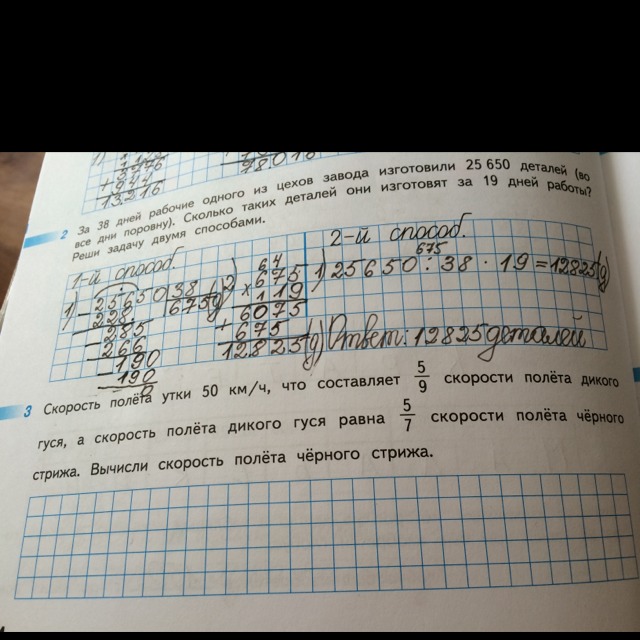 1) 3776
+ 944
13216
98016
2 За 38 дней рабочие одного из цехов завода изготовили 25 650 деталей (во
все дни поровну). Сколько таких деталей они изготовят за 19 дней работы?
Реши задачу двумя способами.
1-й способ.
1) 25650 38
- 228 675(д)
- 285
- 266
- 190
- 190
0
2) 64
× 675
119
6075
+ 675
12825(д)
2-й способ.
675
1) 25650 : 38 · 19 = 12825(д)
Ответ: 12825 деталей
3 Скорость полёта утки 50 км/ч, что составляет 5/9 скорости полёта дикого
гуся, а скорость полёта дикого гуся равна 5/7 скорости полёта чёрного
стрижа. Вычисли скорость полёта чёрного стрижа.